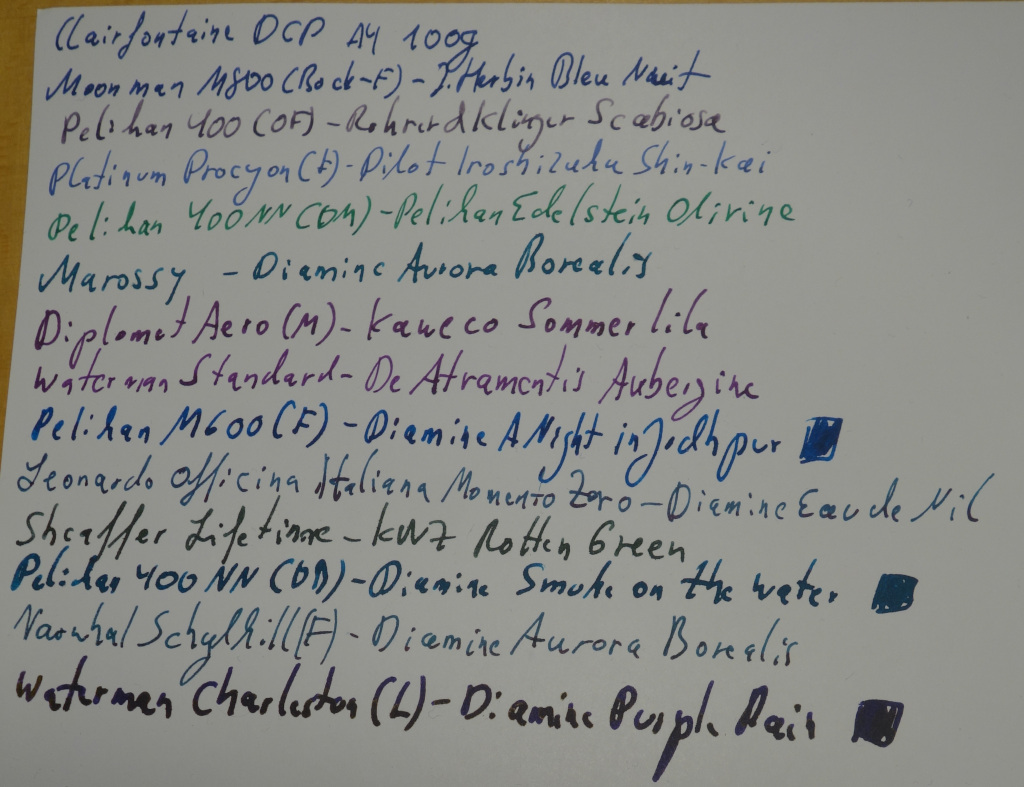 Clairfontaine DCP A4 100g
Moonman M800 (Bock-F) - J. Herbin Bleu Nuit
Pelikan 400 (OF) - Rohrer & Klinger Scabiosa
Platinum Procyon (F) - Pilot Iroshizuku Shin-kai
Pelikan 400NN (OM) - Pelikan Edelstein Olivine
Marossy - Diamine Aurora Borealis
Diplomat Aero (M) - Kaweco Sommerlila
Waterman Standard - De Atramentis Aubergine
Pelikan M600 (F) - Diamine A Night in Jodhpur
Leonardo Officina Italiana Momento Zero - Diamine Eau de Nil
Sheaffer Lifetime - KWZ Rotten Green
Pelikan 400NN - Diamine Smoke on the water
Narwhal Schylkill (F) - Diamine Aurora Borealis
Waterman Charleston (L) - Diamine Purple Rain